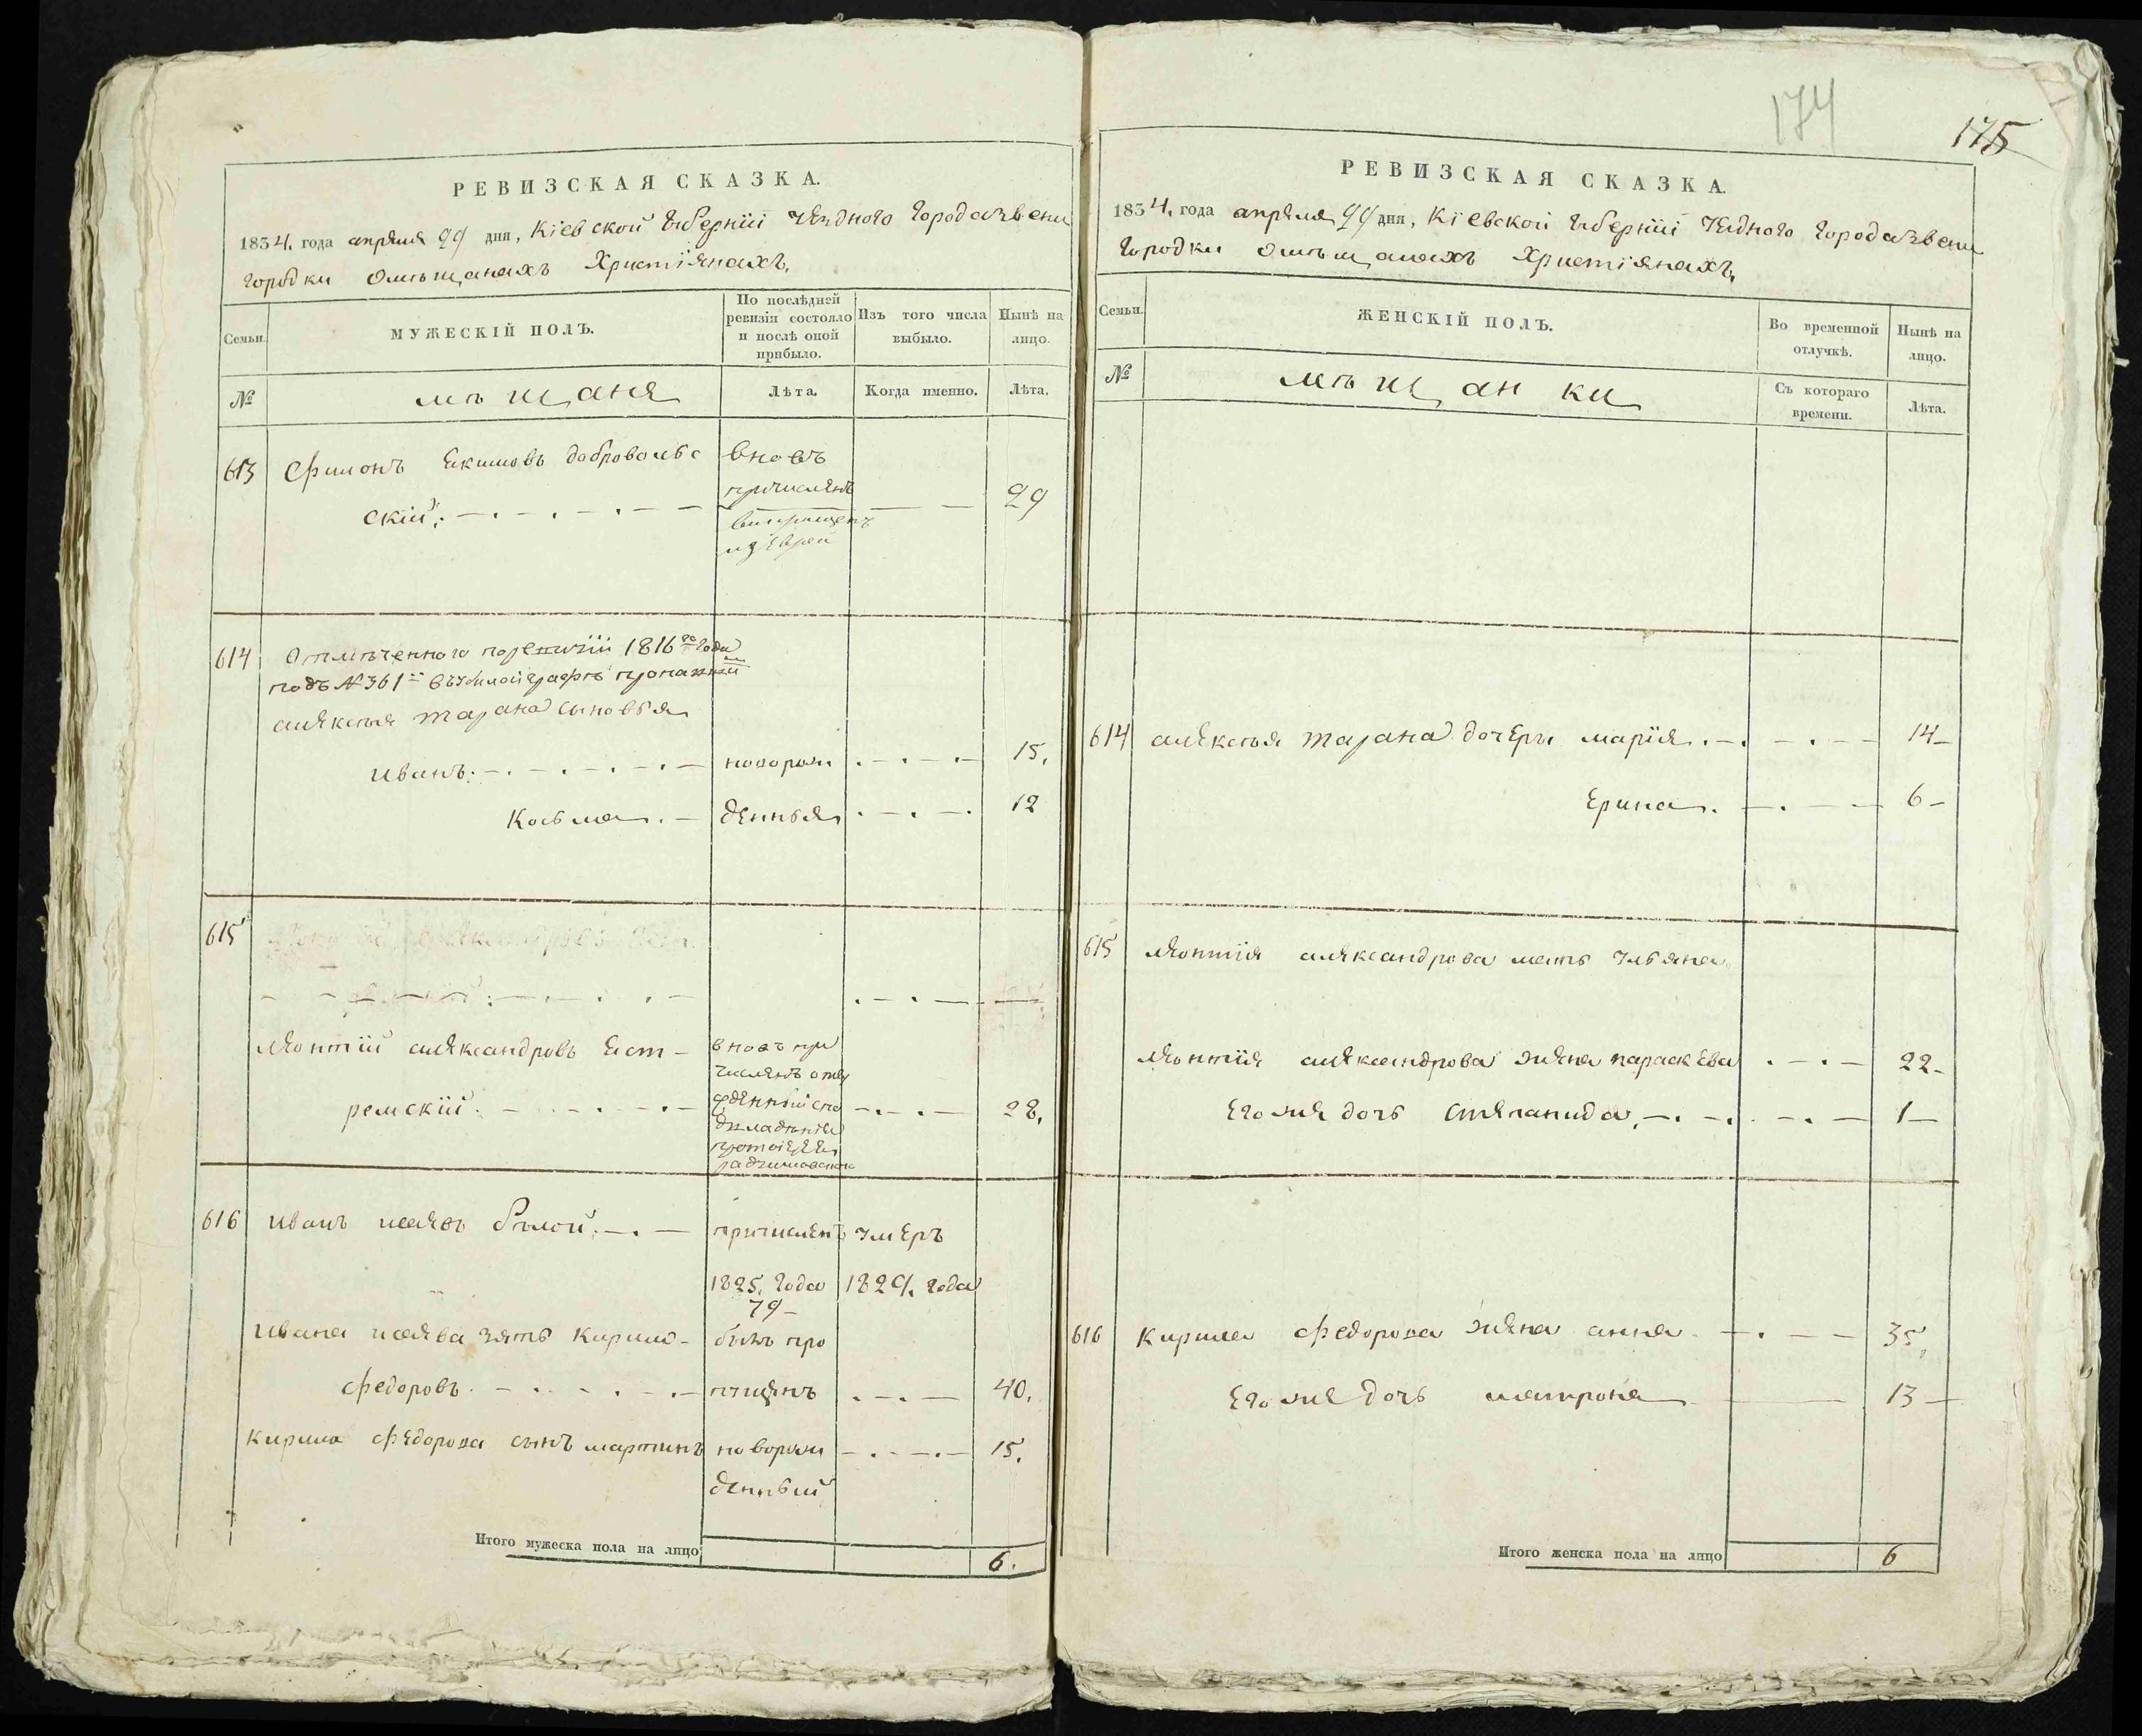 174
175
РЕВИЗСКАЯ СКАЗКА.
1834. года апреля 29 дня, Кіевской Губерніи Уезднаго Города Звени
Городки Омѣщанахъ Християнахъ.
Семьи.
МУЖЕСКІЙ ПОЛЪ.
По послѣдней ревизіи состояло и послѣ оной прибыло.
Изъ того числа выбыло.
Нынѣ на лицо.
№
мѣщаня
Лѣта.
Когда именно.
Лѣта.
613 Филонъ Екимовъ Доброволь вновъ
скій: причислянъ 29
614 Отмѣченного поревизіи 1816го Года
подъ №361
аляксѣя тарана сыновья
иванъ: новорож 15.
Козьма. денныя 12
615
Ляонтій аляксандровъ Ест- вновъ при
ремскій. 28.
616 иванъ исаявъ бѣлой. причислянъ умеръ
1825. Года 1829. Года
79
ивана исаява зять Кирило- былъ про
федоровъ. пущянъ 40.
Кирила федорова сынъ мартинъ новорож 15.
денный
Итого мужеска пола на лицо 6.
РЕВИЗСКАЯ СКАЗКА.
1834. года апреля 29 дня, Кіевской Губерніи Уезднаго Города Звени
Городки Омѣщанахъ Християнахъ.
Семьи.
ЖЕНСКІЙ ПОЛЪ.
Во временной отлучкѣ.
Нынѣ на лицо.
№
мѣщанки
Съ котораго времени.
Лѣта.
614 аляксѣя тарана дочери марія. 14
Ерина. 6
615 Ляонтія аляксандрова мать Ульяна
Ляонтія аляксандрова жяна параскева 22
Его жя дочь стяпанида, 1
616 Кирила федорова жяна анна 35,
Его жя дочь матрона 13
Итого женска пола на лицо 6